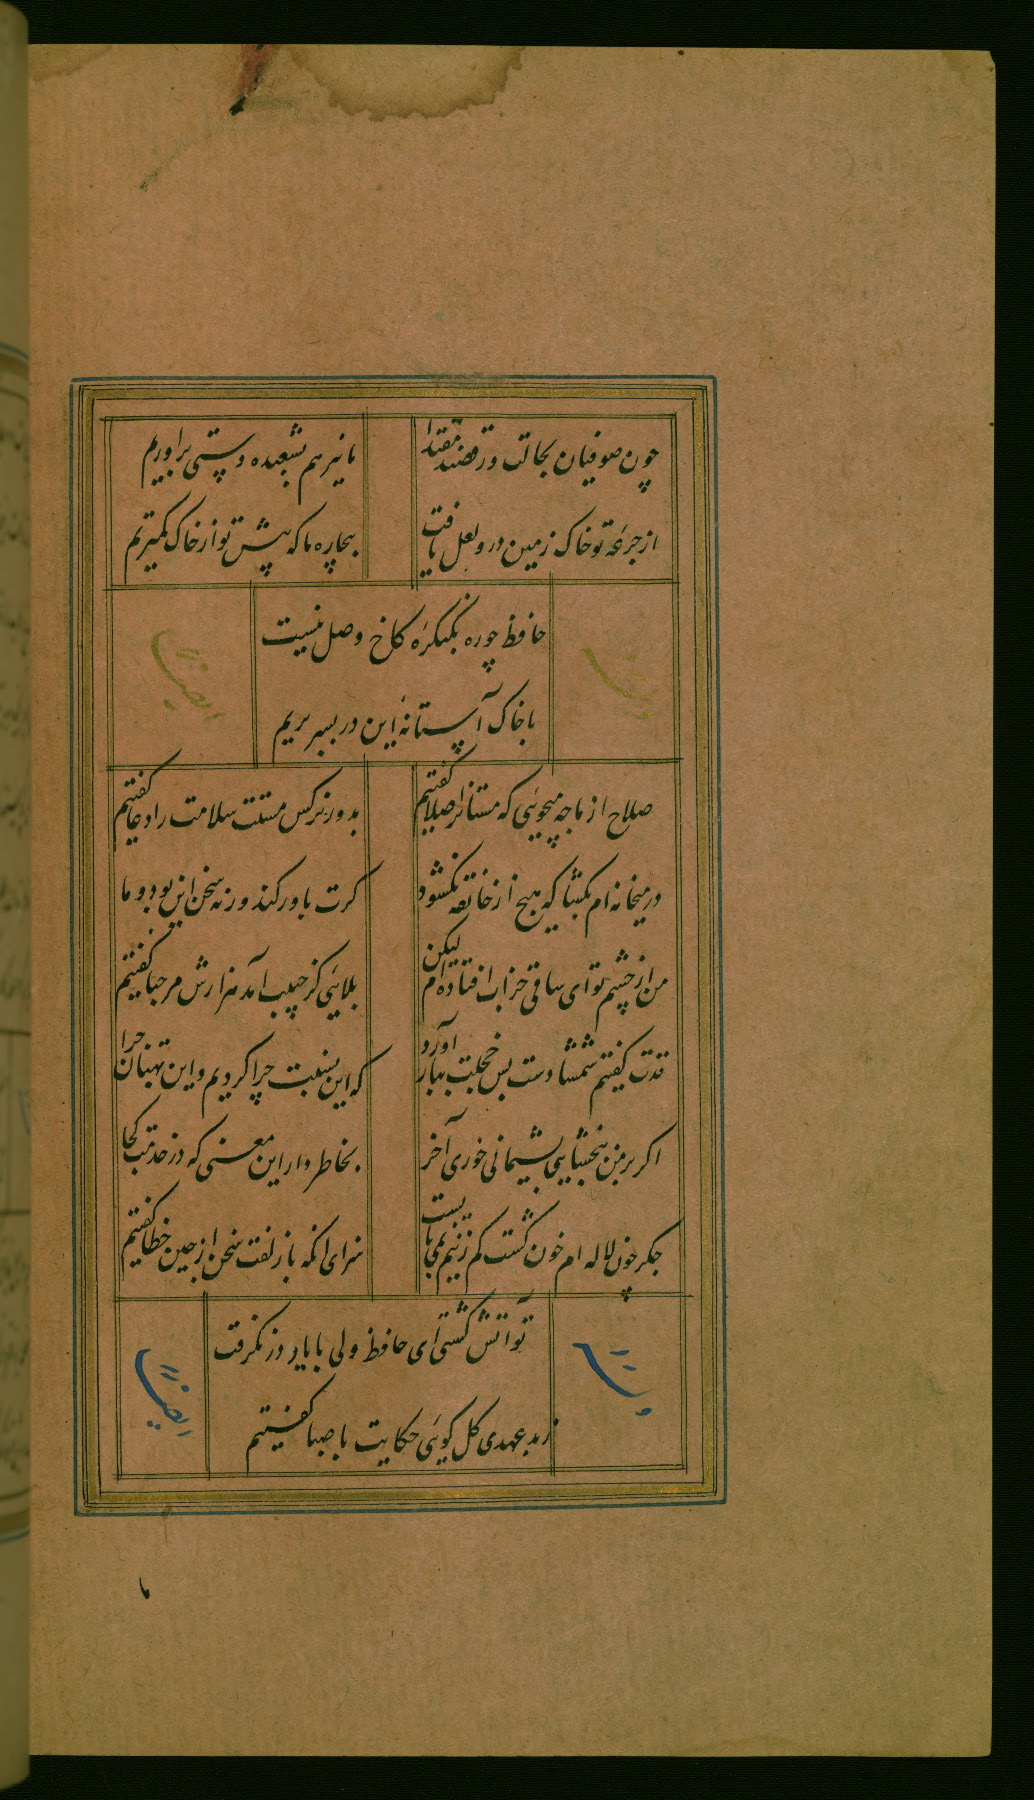 چون صوفیان بحالت و رقصند مقتدا
ما نیز هم بشعبده دستی براوریم
از جرعه تو خاک زمین در و لعل یافت
بیچاره ما که پیش تو از خاک کمتریم
حافظ چو ره بکنکره کاخ وصل نیست
با خاک آستانه این در بسر بریم
وله
ایضا
صلاح از ما چه میجوئی که مستانرا صلا کفتیم
بدور نرکس مستت سلامت را دعا کفتیم
در میخانه ام بکشا که هیچ از خانقه نکشود
کرت باور کند ورنه سخن این بود و ما
من از چشم تو ای ساقی خراب افتاده ام لیکن
بلائی کز حبیب آمد هزارش مرحبا کفتیم
قدت کفتیم شمشادست بس خجلت ببار آورد
که این نسبت چرا کردیم و این بهتان چرا
اکر بر من نبخشایی پشیمانی خوری آخر
بخاطر دار این معنی که در خدمت کجا
جکر چون لاله ام خون کشت کم زینم نمی بایست
سزای انکه با زلفت سخن از چین خطا کفتیم
تو آتش کشتی ای حافظ ولی با یار در نکرفت
ز بد عهدی کل کوئی حکایت با صبا کفتیم
وله
ایضا
ما